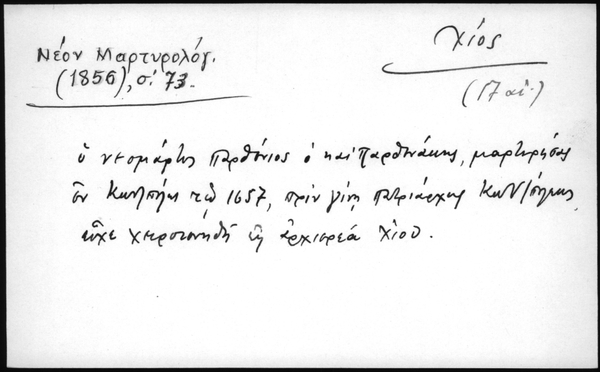 Νέον Μαρτυρολόγ.
(1856), σ. 73.
Χίος
(17 αἰ.)
ὁ νεομάρτυς Παρθένιος ὁ καὶ Παρθενάκης, μαρτυρήσας
ἐν Κων/πόλει τῷ 1657, πρὶν γίνῃ πατριάρχης Κων/πόλεως,
εἶχε χειροτονηθῆ εἰς ἀρχιερέα Χίου.